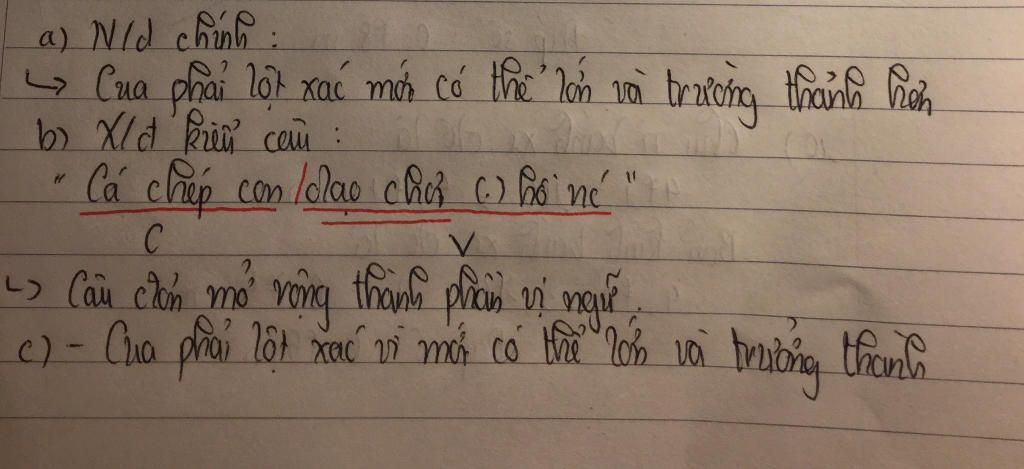 a) N/d chính :
↳ Cua phải lột xác mới có thể lớn và trưởng thành hơn
b) X/đ kiểu câu :
" Cá chép con / dạo chơi (.) hỏi nó "
C V
↳ Câu đơn mở rộng thành phần vị ngữ.
c) - Cua phải lột xác vì mới có thể lớn và trưởng thành